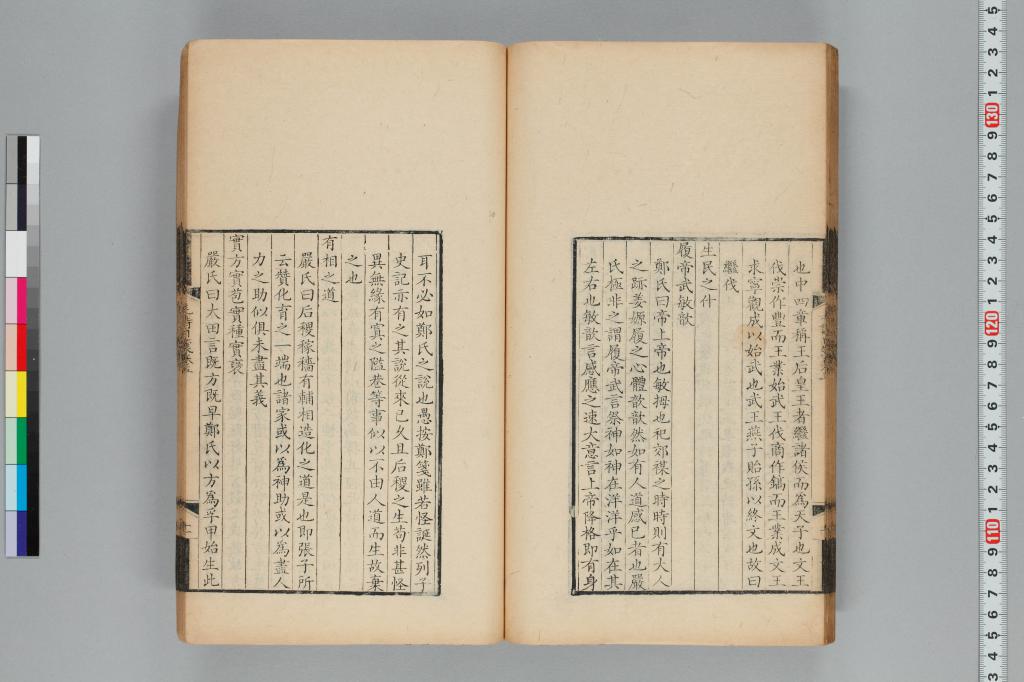 也中四章稱王后皇王者繼諸侯而為天子也文王
伐崇作豐而王業始武王伐商作鎬而王業成文王
求寧觀成以始武也武王燕子貽孫以終文也故曰
繼伐
生民之什
履帝武敏歆
鄭氏曰帝上帝也敏拇也祀郊禖之時時則有大人
之跡姜嫄履之心體歆歆然如有人道感已者也嚴
氏極非之謂履帝武言祭神如神在洋洋乎如在其
左右也敏歆言感應之速大意言上帝降格即有身
耳不必如鄭氏之說也愚按鄭箋雖若怪誕然列子
史記亦有之其說從來已久且后稷之生苟非甚怪
異無緣有寘之隘巷等事似以不由人道而生故棄
之也
有相之道
嚴氏曰后稷稼穡有輔相造化之道是也即張子所
云贊化育之一端也諸家或以為神助或以為盡人
力之助似俱未盡其義
實方實苞實種實襃
嚴氏曰大田言既方既早鄭氏以方為孚甲始生此